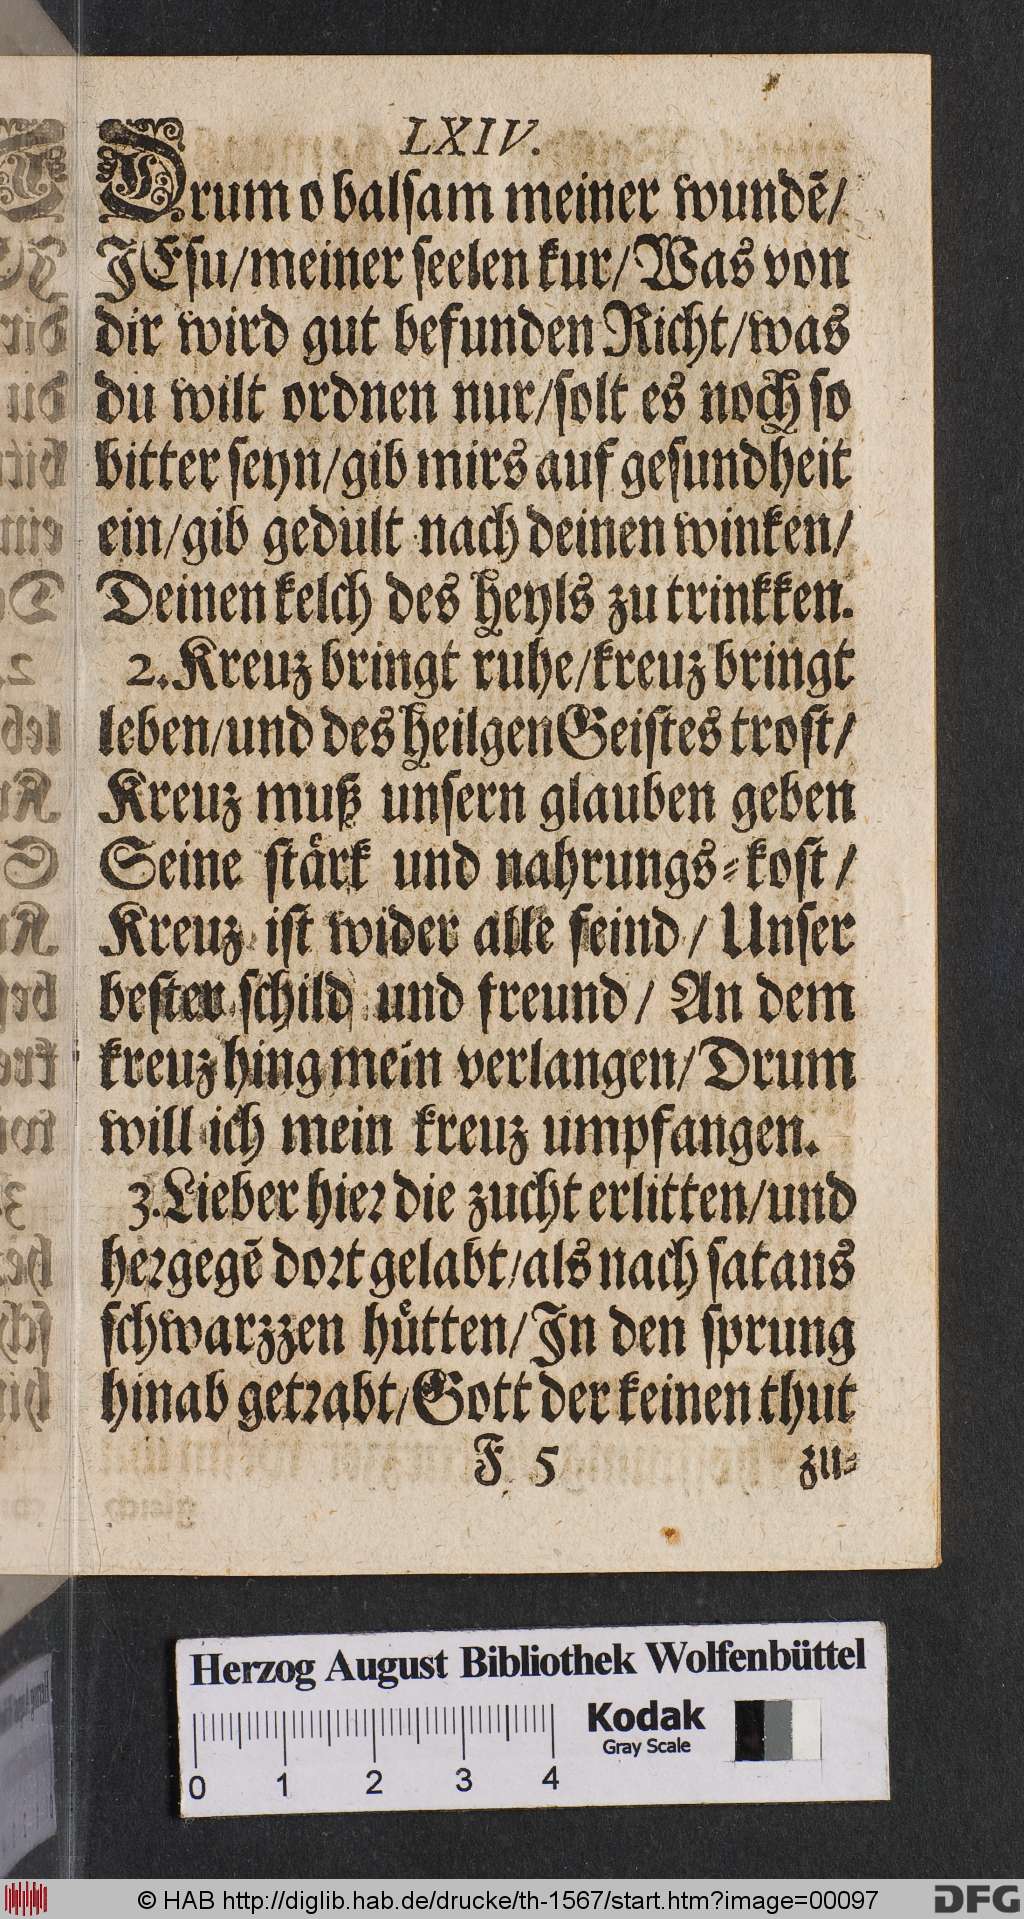 LXIV.
Drum o balſam meiner wundē/
JEſu/meiner ſeelen kur/Was von
dir wird gut befunden Richt/was
du wilt ordnen nur/ſolt es noch ſo
bitter ſeyn/gib mirs auf geſundheit
ein/gib gedult nach deinen winken/
Deinen kelch des heyls zu trinkken.
2. Kreuz bringt ruhe/kreuz bringt
leben/und des heilgen Geiſtes troſt/
Kreuz muß unſern glauben geben
Seine ſtårk und nahrungs⸗koſt/
Kreuz iſt wider alle feind/ Unſer
beſter ſchild und freund/ An dem
kreuz hing mein verlangen/Drum
will ich mein kreuz umpfangen.
3. Lieber hier die zucht erlitten/und
hergegē dort gelabt/als nach ſatans
ſchwarzzen huͤtten/In den ſprung
hinab getrabt/Gott der keinen thut
F 5 zu⸗
Herzog August Bibliothek Wolfenbüttel
Kodak
Gray Scale
0 1 2 3 4
© HAB http://diglib.hab.de/drucke/th-1567/start.htm?image=00097
DFG